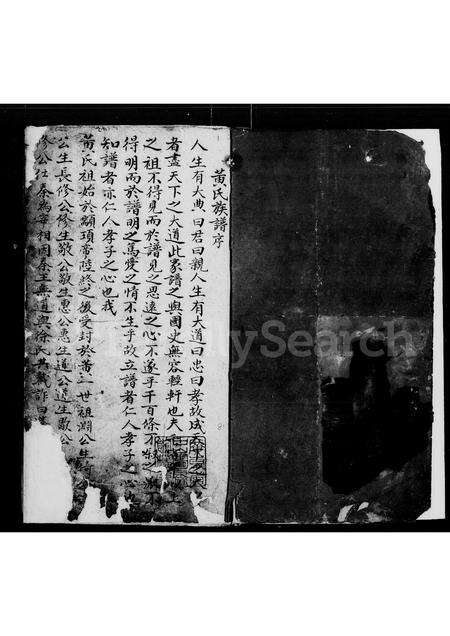 黃氏族譜序
人生有大典曰君曰親人生有大道曰忠曰孝故成天下之
者盡天下之大道此家譜之與國史無容輕軒也夫
之祖不得見而於譜見之思遠之心不遂乎千百條不
得明而於譜明之焉愛之情不生乎故立譜者仁人孝子之心也
知譜者亦仁人孝子之心也我
黃氏祖始於顓頊帝陸終之後受封於黃一世祖淵公生
公生長修公修生敬公敬生惠公惠生遠公遠生敵公
修公仕秦為宰相因秦王無道與徐氏
FamilySearch